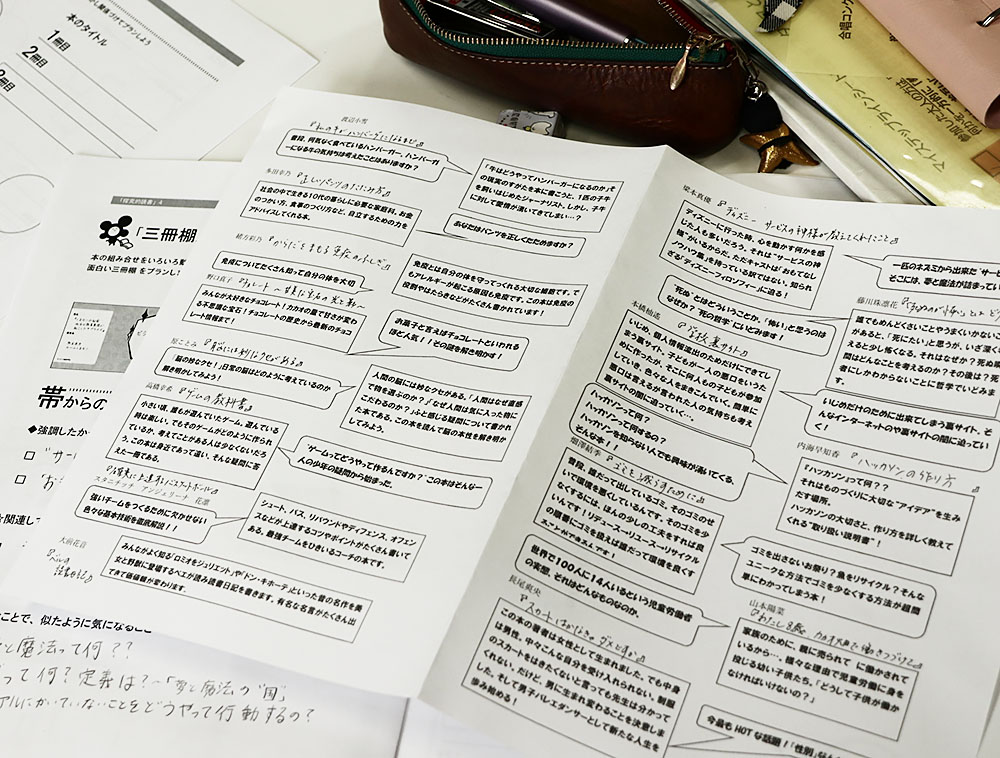 本のタイトル
1冊目
2冊目
「探究的読書」4
「三冊棚
本の組み合せをいろいろ
面白い三冊棚をプラン
帯からの
◆強調したか
関連して
ことで、似たように気になるこ
と魔法って何??
って何?定義は?〜「夢と魔法の"国"
アルにかいていないことをどうやって行動するの?
渡辺小雪
普段、何気なく食べているハンバーガー、ハンバーガ
ーになる牛の気持ちは考えたことはありますか?
「牛はどうやってハンバーガーになるのか」そ
の現実のすがたを本に書こうと、1匹の子牛
を飼いはじめたジャーナリスト。しかし、子牛
に対して愛情が湧いてきてしまい…?
本田幸乃
『正しいパンツのたたみ方』
社会の中で生きる10代の暮らしに必要な家庭科。お金
のつかい方、食事のつくり方など、自立するための力を
アドバイスしてくれる本。
あなたはパンツを正しくたためますか?
緒方彩乃
『からだをまもる免疫のふしぎ』
免疫についてたくさん知って自分の体を大切
免疫とは自分の体を守ってくれる大切な細胞です。で
もアレルギーが起こる原因も免疫です。この本は免疫の
役割やはたらきなどがたくさん書かれています!
みんなが大好きなチョコレート!カカオの量で甘さが変わ
る不思議な宝石!チョコレートの歴史から最新のチョコ
レート情報まで!
お菓子と言えばチョコレートといわれる
ほど人気!!その謎を解き明かす!
原ことみ
『脳には妙なクセがある』
「脳の妙なクセ!」日常の脳はどのように考えているのか
解き明かしてみよう!
人間の脳には妙なクセがある。「人間はなぜ直感
で物を選ぶのか?」「なぜ人間は気に入った物に
こだわるのか?」ふと感じる疑問について書かれ
た本である。この本を読んで脳の本性を解き明か
してみよう。
高橋幸希
『ゲームの教科書』
小さい頃、誰もが遊んでいたゲーム。遊んでいる
時は楽しい。でもそのゲームがどのように作られ
ているか、考えてことがある人は少なくないだろ
う。この本は身近であって遠い、そんな疑問に答
えた一冊である。
「ゲームってどうやって作るんですか?」この本はそんな一
人の少年の疑問から始まった。
『確実に上達するバスケットボール』
スタニチック アンジェリーナ 花凛
強いチームをつくるために欠かせない
色々な基本技術を徹底解説!!
シュート、パス、リバウンドやディフェンス、オフェン
スなどが上達するコツやポイントがたくさん書いて
ある、最強チームをひきいるコーチの本です。
大朏花音
みんながよく知る「ロミオをジュリエット」や「ドン・キホーテ」といった昔の名作を美
女と野獣に登場するベルが読み読書日記を書きます。有名な名言がたくさん出
てきて価値観が変わります。
梁本真優
『ディズニー サービスの神様が教えてくれたこと』
ディズニーに行った時、心を動かす何かを感
じた人も多いだろう。それは"サービスの神
様"がいるからだ。ただキャストが「おもてなし
ノウハウ集」を持っている訳ではない。知られ
ざる「ディズニーフィロソフィー」に迫る!
一匹のネズミから出来た"サー
そこには、夢と魔法が詰まってい
"死ぬ"とはどういうことか。「怖い」と思うのは
なぜか?"死の哲学"にいどみます!
藤川珠凛花
誰でもめんどくさいことやうまくいかない
があると、「死にたい」と思うが、いざ深く
えると少し怖くなる。それはなぜか?死ぬ
間はどんなことを考えるのか?その後は?死
者にしかわからないことに哲学でいどみま
す。
本橋柚遙
『学校裏サイト』
いじめ、個人情報流出のためだけにできてし
まう裏サイト。子どもが一人の悪口をいうた
めに作ったが、そこに何人もの子どもが参加
していき、色々な人をまきこんでいく。簡単に
悪口は言えるが言われた人の気持ちも考え
裏サイトの闇に迫っていく…。
いじめだけのために出来てしまう裏サイト、そ
んなインターネットのや裏サイトの闇に迫ってい
く!
ハッカソンって何?
ハッカソンって何するの?
ハッカソンを知らない人でも興味が湧いてくる、
そんな本!!
内海早知香
『ハッカソンの作り方』
『ハッカソン』って何??
それはものづくりに大切な"アイデア"を生み
だす場所。
ハッカソンの大切さと、作り方を詳しく教えて
くれる"取り扱い説明書"!
畑澤結季
『ゴミを減らすために』
普段、誰だって出しているゴミ。そのゴミのせ
いで環境を悪くしているんです。そのゴミを少
なくするには、ほんの少しの工夫をすれば良
いんです!リデュース-リユース-リサイクル
の順番にゴミを扱えば誰だって環境を良くす
ゴミを出さないお祭り?魚をリサイクル?そんな
ユニークな方法でゴミを少なくする方法が超簡
単にわかってしまう本!
世界で100人に14人いるという児童労働者
の実態。それはどんなものなのか。
山本陽菜
『わたし8歳、カカオ畑で働きつづけて』
家族のために、親に売られて に働かされて
いるから…。様々な理由で児童労働に身を
投じる幼い子供たち。「どうして子供が働か
なければいけないの?」
長尾東央
『スカートはかなきゃダメですか?』
この本の著者は女性として生まれました。でも中身
は男性。中々こんな自分を受け入れられない。制服
のスカートをはきたくないと言っても先生は分かって
くれない。だけど、男に生まれ変わることを決意しま
した。そして男子バレエダンサーとして新たな人生を
歩み始める!
今最もHOTな話題!「性別」
マイステップラインシート
合唱コン